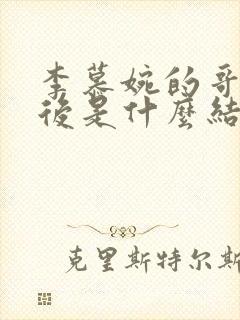 李慕婉的哥
後是什麼結
克里斯特尔斯